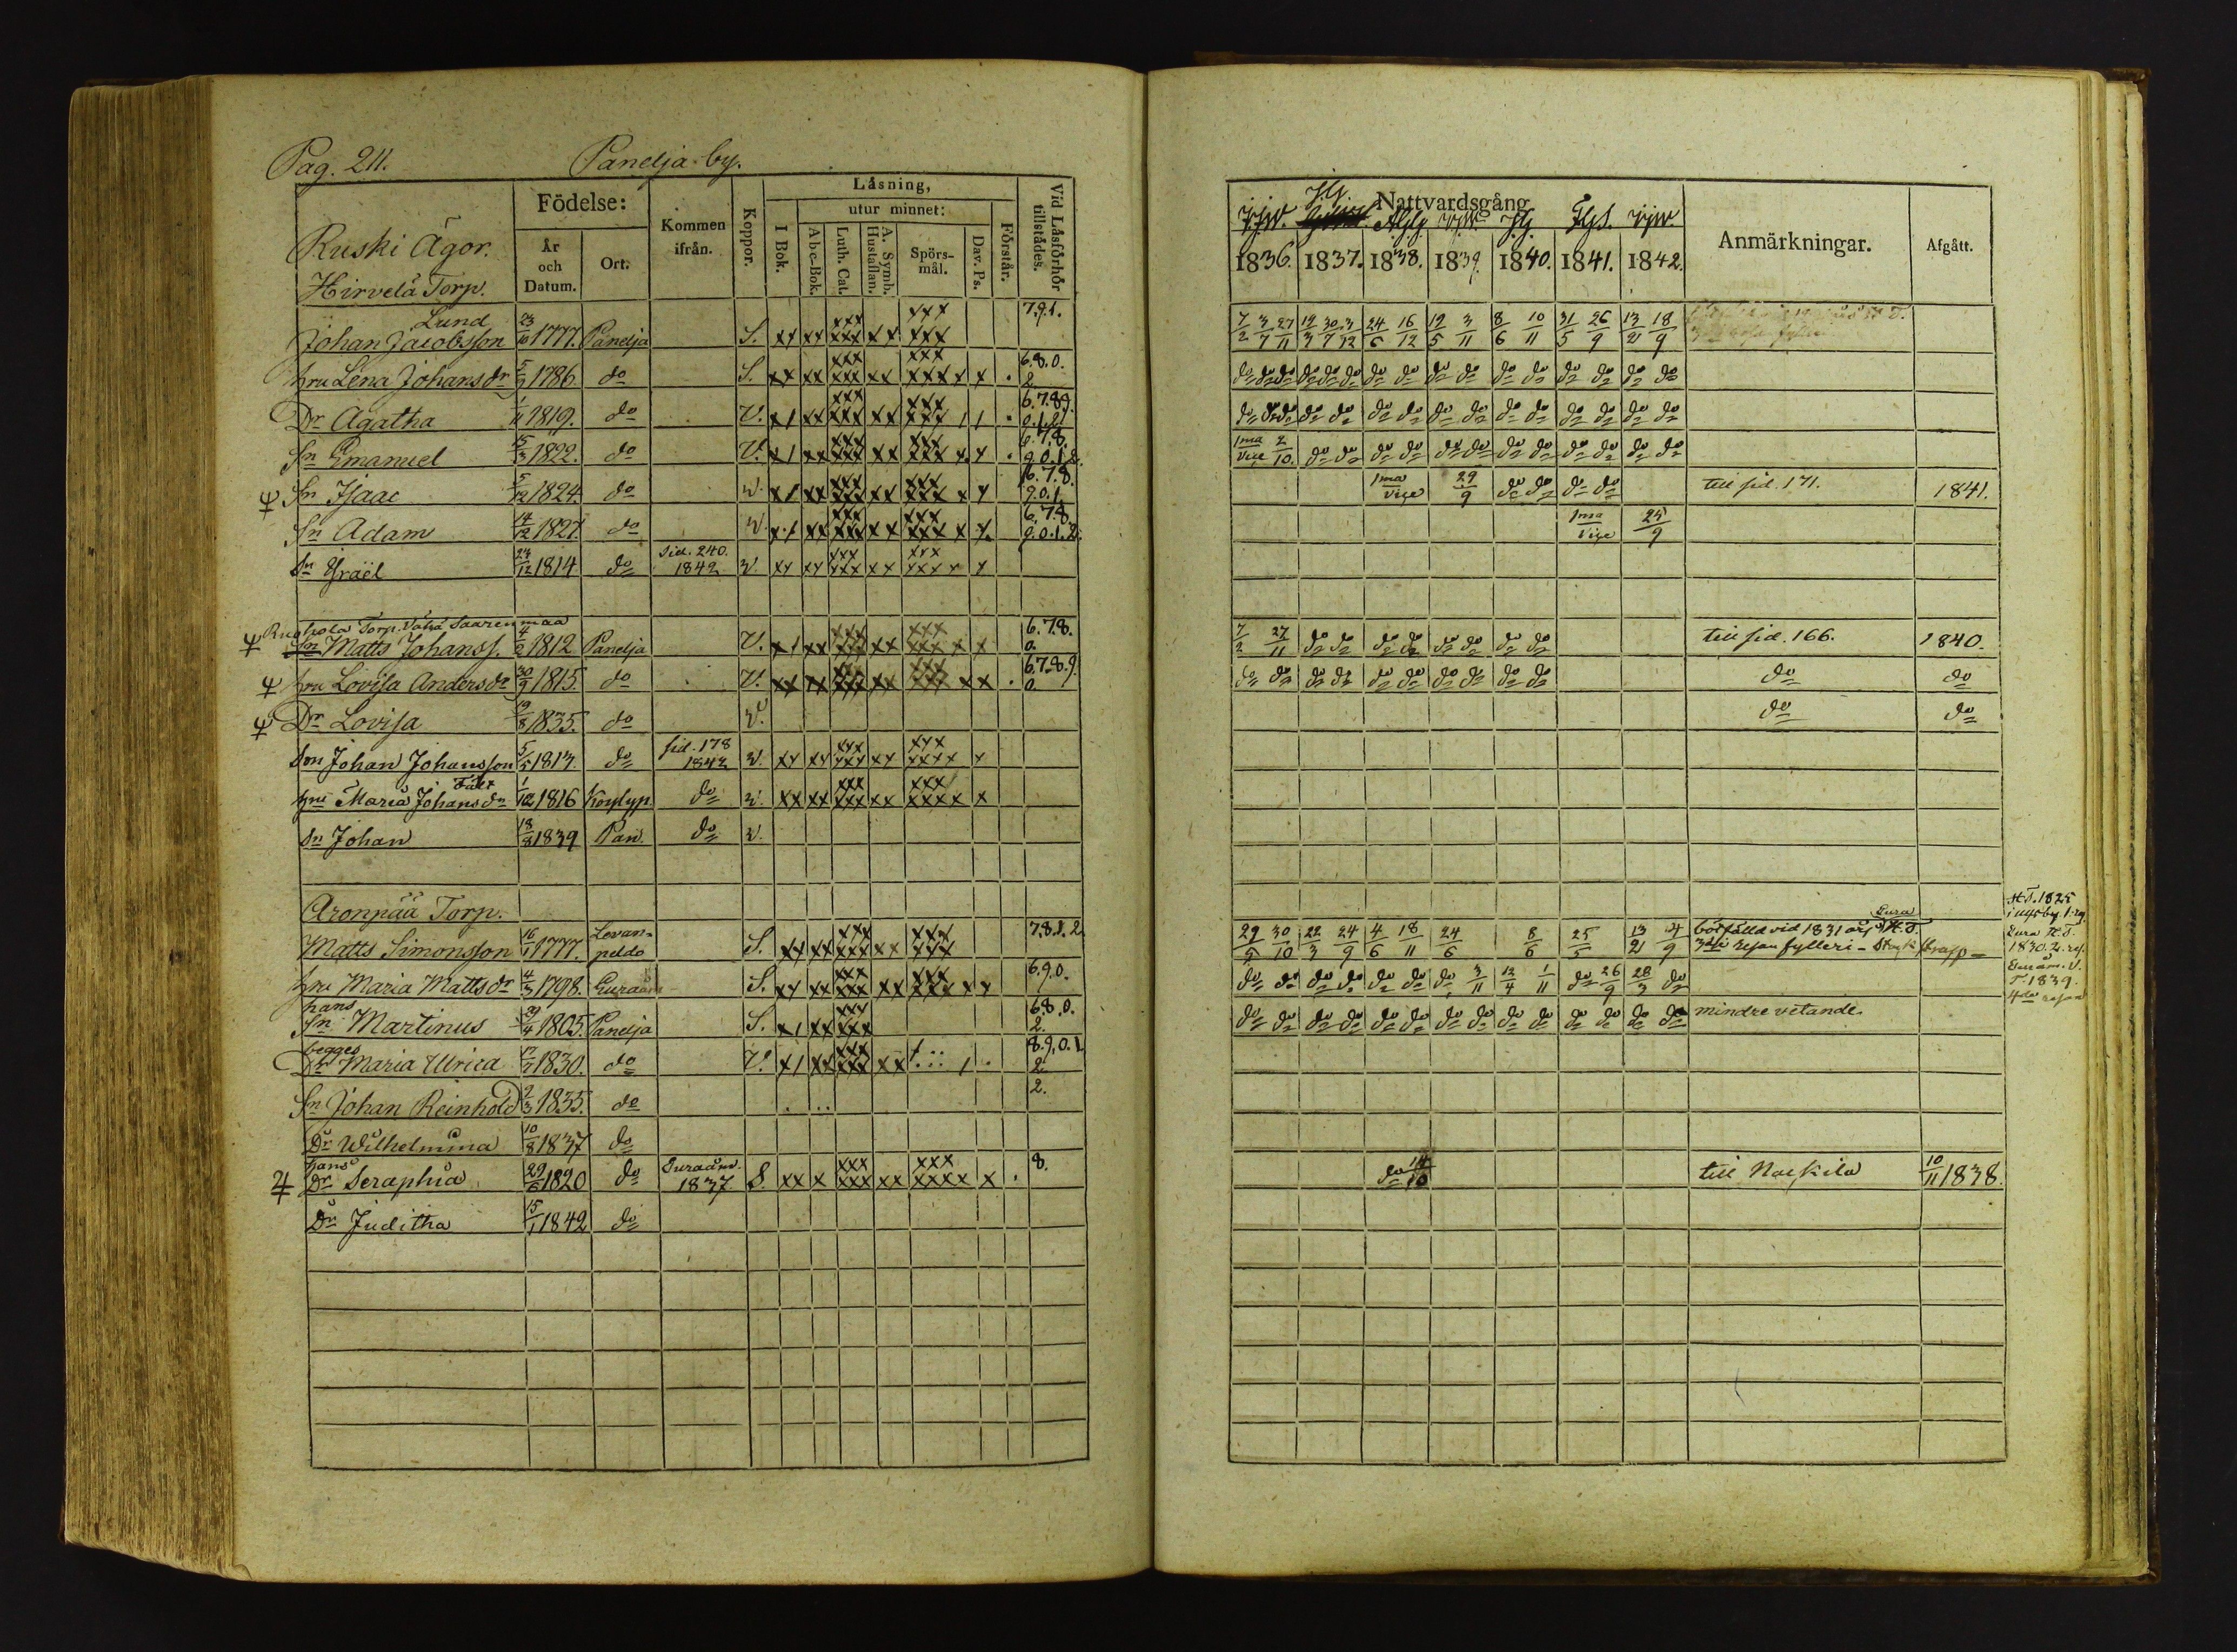 Pag. 211. Panelja by.
Ruski Ägor.
Hirvelä Torp.
Födelse:
År och Datum.
Ort.
Kommen ifrån.
Koppor.
Läsning,
utur minnet:
I Bok.
Abc-Bok.
Luth. Cat.
A. Symb. Hustaflan.
Spörs-mål.
Dav. Ps.
Förstår.
Vid Läsförhör tillstädes.
Nattvardsgång.
1836. 1837. 1838. 1839. 1840. 1841. 1842.
Anmärkningar.
Afgått.
Lund
Johan Jacobsson 23/10 1777. Panelja S. xx xx xxx xxx xx xxx xxx 7.9.1. 7/2 3/7 27/11 19/3 30/7 3/12 24/6 16/12 19/5 3/11 8/6 10/11 31/5 26/9 13/2 18/9
hru Lena Johansdr 5/9 1786. do S. xx xx xxx xxx xx xxx xxxx x . 6.8.0. 2. do do do do do do do do do do do do do do do do
Dr Agatha 1/11 1819. do V. x1 xx xxx xxx xx xxx xxx 1 1 . 6.7.8.9. 0.1.2. do do do do do do do do do do do do do do do
Sn Emanuel 15/3 1822. do V. x1 xx xxx xxx xx xxx xxx x x . 6.7.8. 9.0.1.2. 1ma vice 2/10. do do do do do do do do do do do do
Sn Isaac 5/12 1824 do v. x1 xx xxx xxx xx xxx xxx x x 6.7.8. 9.0.1. 1ma vice 29/9 do do do do till sid. 171. 1841.
Sn Adam 14/12 1827. do v. x1 xx xxx xxx xx xxx xxx x x 6.7.8. 9.0.1.2. 1ma vice 25/9
Sn Israël 24/12 1814 do Sid. 240. 1842 v. xx xx xxx xxx xx xxx xxxx x
Ruohola Torp. Vähä Saarenmaa
Sn Matts Johanss. 4/2 1812 Panelja V. x1 xx xxx xxx xx xxx xxx x x 6.7.8. 0. 7/2 27/11 do do do do do do do do till sid. 166. 1840.
hru Lovisa Andersdr 30/9 1815. do V. xx xx xxx xxx xx xxx xxx x x . 6.7.8.9. 0. do do do do do do do do do do do do
Dr Lovisa 19/8 1835. do v. do do
Son Johan Johansson 5/5 1813. do sid. 178 1842 v. xx xx xxx xxx xx xxx xxxx x
hru Maria Johansdr 1/12 1816 Köylyp do v. xx xx xxx xxx xx xxx xxxx x
Sn Johan 18/8 1839 Pan. do v.
Aronpää Torp.
Matts Simonsson 16/1 1777. Levan=peldo S. xx xx xxx xxx xx xxx xxx 7.8.1.2 29/5 30/10 22/3 24/9 4/6 18/11 24/6 8/6 25/5 13/2 4/9 botfälld vid 1831 års Eura H.T. resan fylleri
hru Maria Mattsdr 4/3 1798. Euraåm S. xx xx xxx xxx xx xxx xxx x x 6.9.0. do do do do do do do 3/11 12/4 1/11 do 26/9 28/3 do
hans
Sn Martinus 29/4 1805. Panelja S. x1 xx xxx xxx 6.8.0. 2. do do do do do do do do do do do do do do mindre vetande.
begges
Dr Maria Ulrica 17/7 1830. do V. x1 xx xxx xxx xx 8.9.0.1. 2.
Sn Johan Reinhold 2/3 1835. do 2.
Dr Wilhelmina 10/8 1837 do
hans
Dr Seraphia 29/6 1820 do Euraåm. 1837. S. xx x xxx xxx xx xxx xxxx x . 8. do 14/10 till Naskila 10/11 1838.
Dr Juditha 15/1 1842 do
H.T. 1825
Eura H.T.
1830. 2. res.
1839.
4de resan